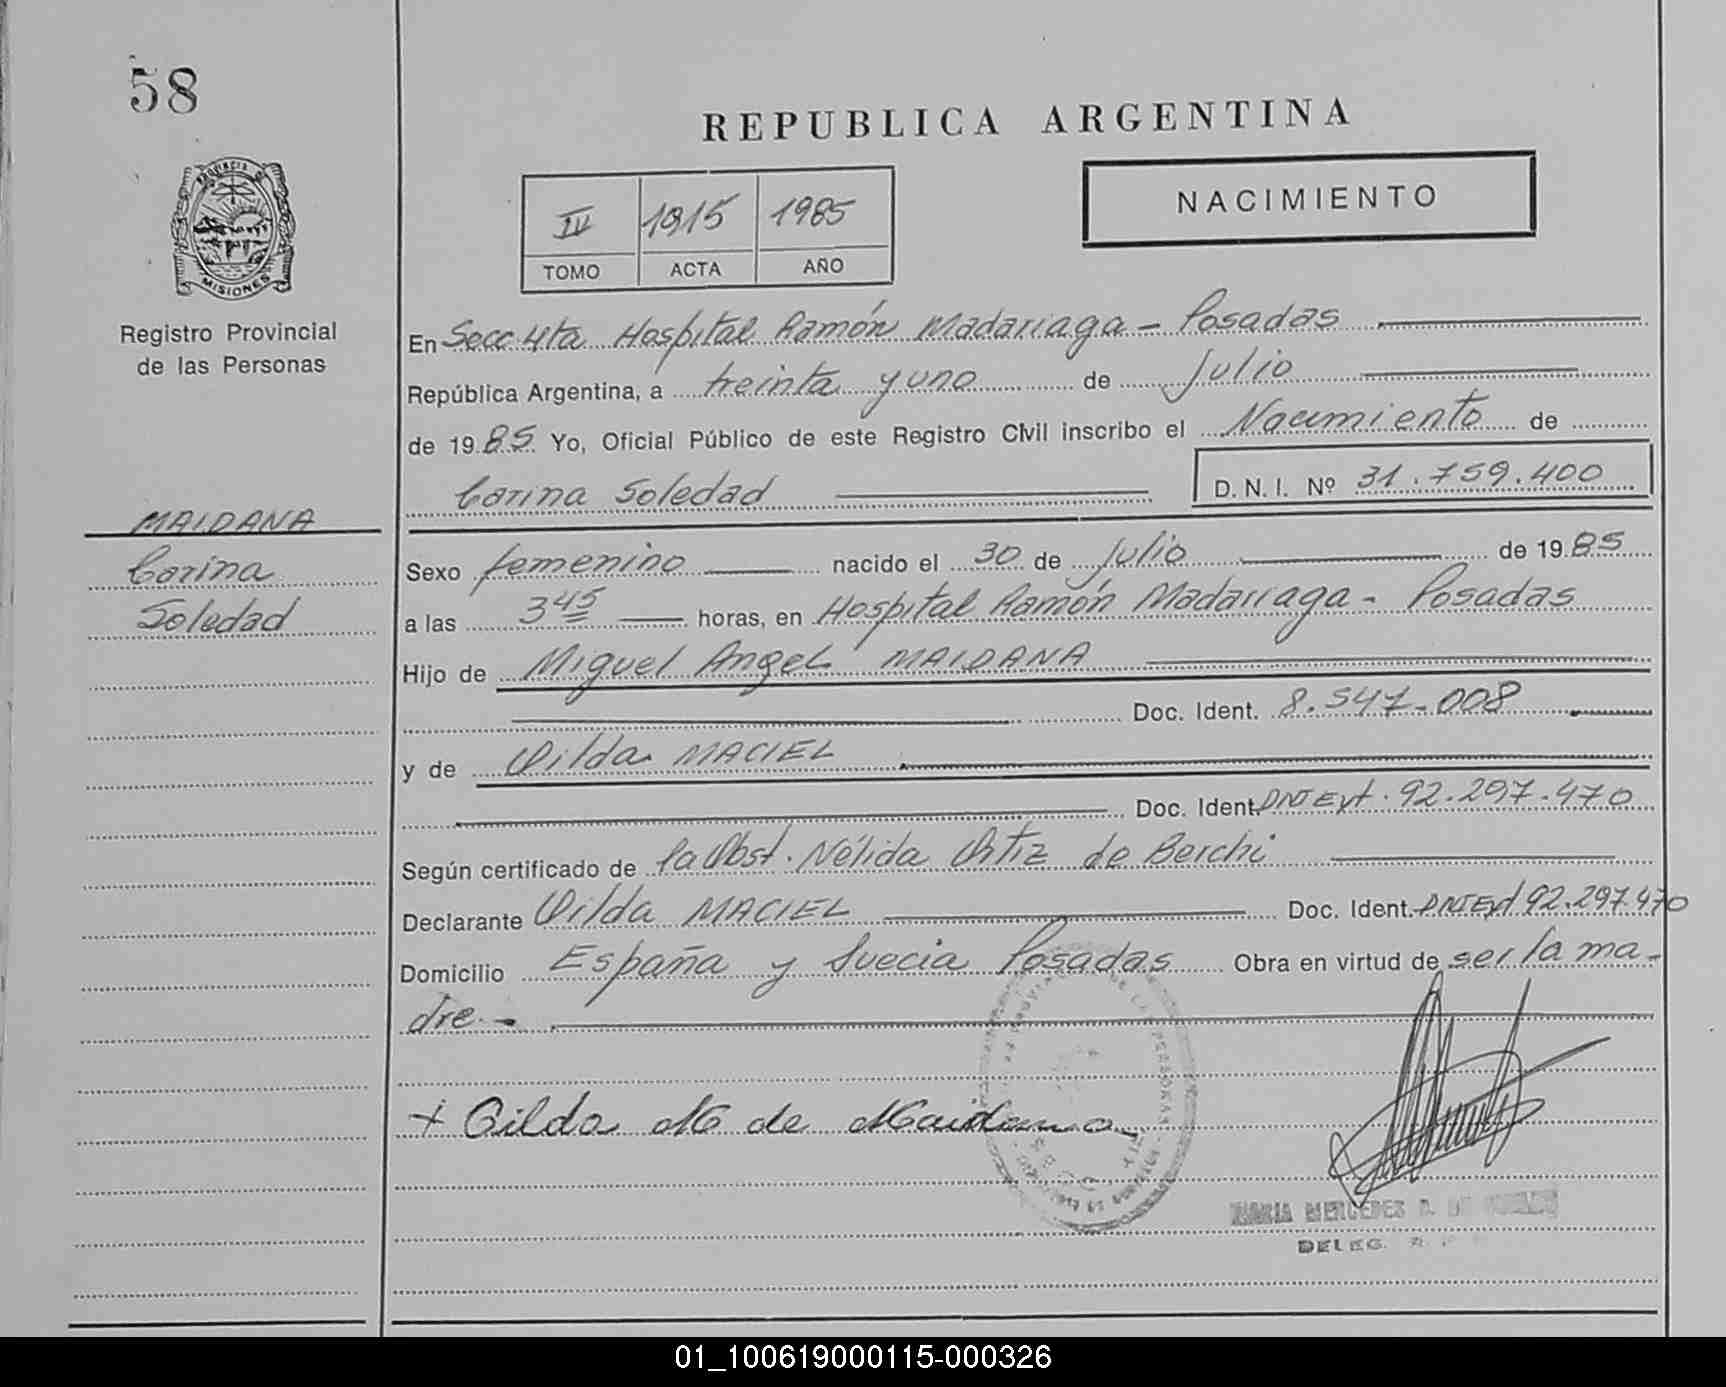 58
REPUBLICA ARGENTINA
NACIMIENTO
IV 1915 1985
TOMO ACTA AÑO
PROVINCIA DE
MISIONES
Registro Provincial
de las Personas
En Secc 4ta Hospital Ramón Madariaga - Posadas
República Argentina, a treinta y uno de Julio
de 1985 Yo, Oficial Público de este Registro Civil inscribo el Nacimiento de
Carina Soledad D. N. I. Nº 31.759.400
MAIDANA
Carina
Soledad
Sexo femenino nacido el 30 de Julio de 1985
a las 3 45 horas, en Hospital Ramón Madariaga - Posadas
Hijo de Miguel Angel MAIDANA
Doc. Ident. 8.547.008
y de Oilda MACIEL
Doc. Ident. DNI Ext. 92.297.470
Según certificado de la Obst. Nélida Ortiz de Berchi
Declarante Oilda MACIEL Doc. Ident. DNI Ext 92.297.470
Domicilio España y Suecia Posadas Obra en virtud de ser la ma-
dre.-
+ Oilda M de Maidana
DE LAS PERSONAS
MARIA MERCEDES D. DE
DELEG.
01_100619000115-000326